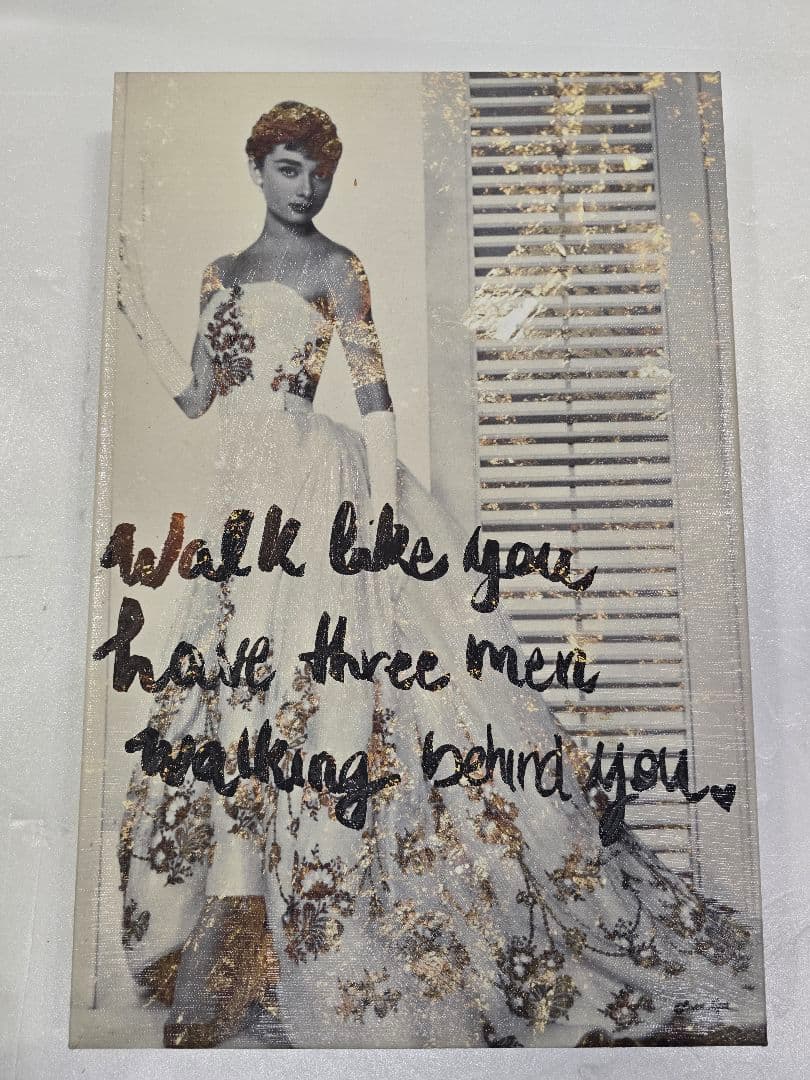 Walk like you
have three men
walking behind you